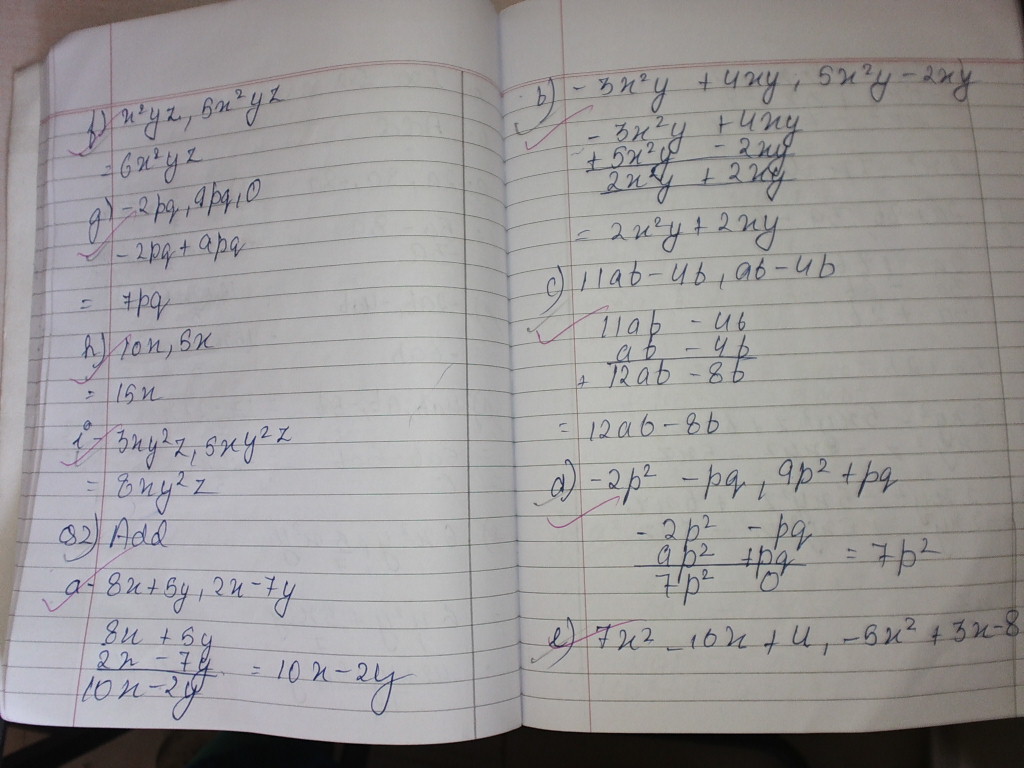 f) x²yz, 5x²yz
= 6x²yz
g) -2pq, 9pq, 0
-2pq + 9pq
= 7pq
h) 10x, 5x
= 15x
i- 3xy²z, 5xy²z
= 8xy²z
Q2) Add
a- 8x+5y, 2x-7y
8x + 5y
2x - 7y
10x-2y = 10x-2y
b) -3x²y + 4xy, 5x²y - 2xy
-3x²y + 4xy
+5x²y - 2xy
2x²y + 2xy
= 2x²y + 2xy
c) 11ab - 4b, ab - 4b
11ab - 4b
ab - 4b
+ 12ab - 8b
= 12ab - 8b
d) -2p² - pq, 9p² + pq
-2p² - pq
9p² + pq = 7p²
7p² 0
e) 7x² - 10x + 4, -5x² + 3x - 8